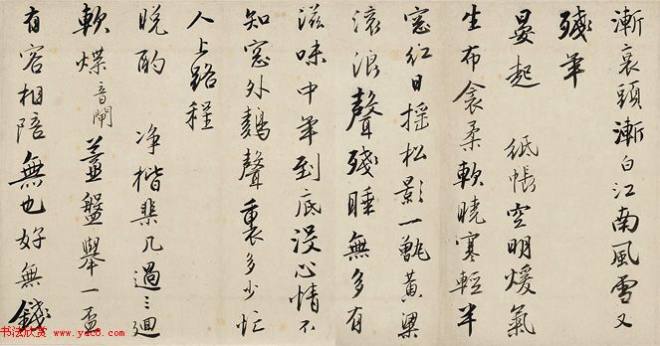 漸衰頭漸白江南風雪又
殘年
晏起 紙帳空明煖氣
生布衾柔軟曉寒輕半
窓紅日搖松影一甑黃粱
滾浪聲殘睡無多有
滋味中年到底沒心情不
知窓外鷄聲裏多少忙
人上路程
晚酌 净揩棐几過三迴
軟煠音閘薑盤舉一盃
有客相陪無也好無錢
书法欣赏 www.yac8.com